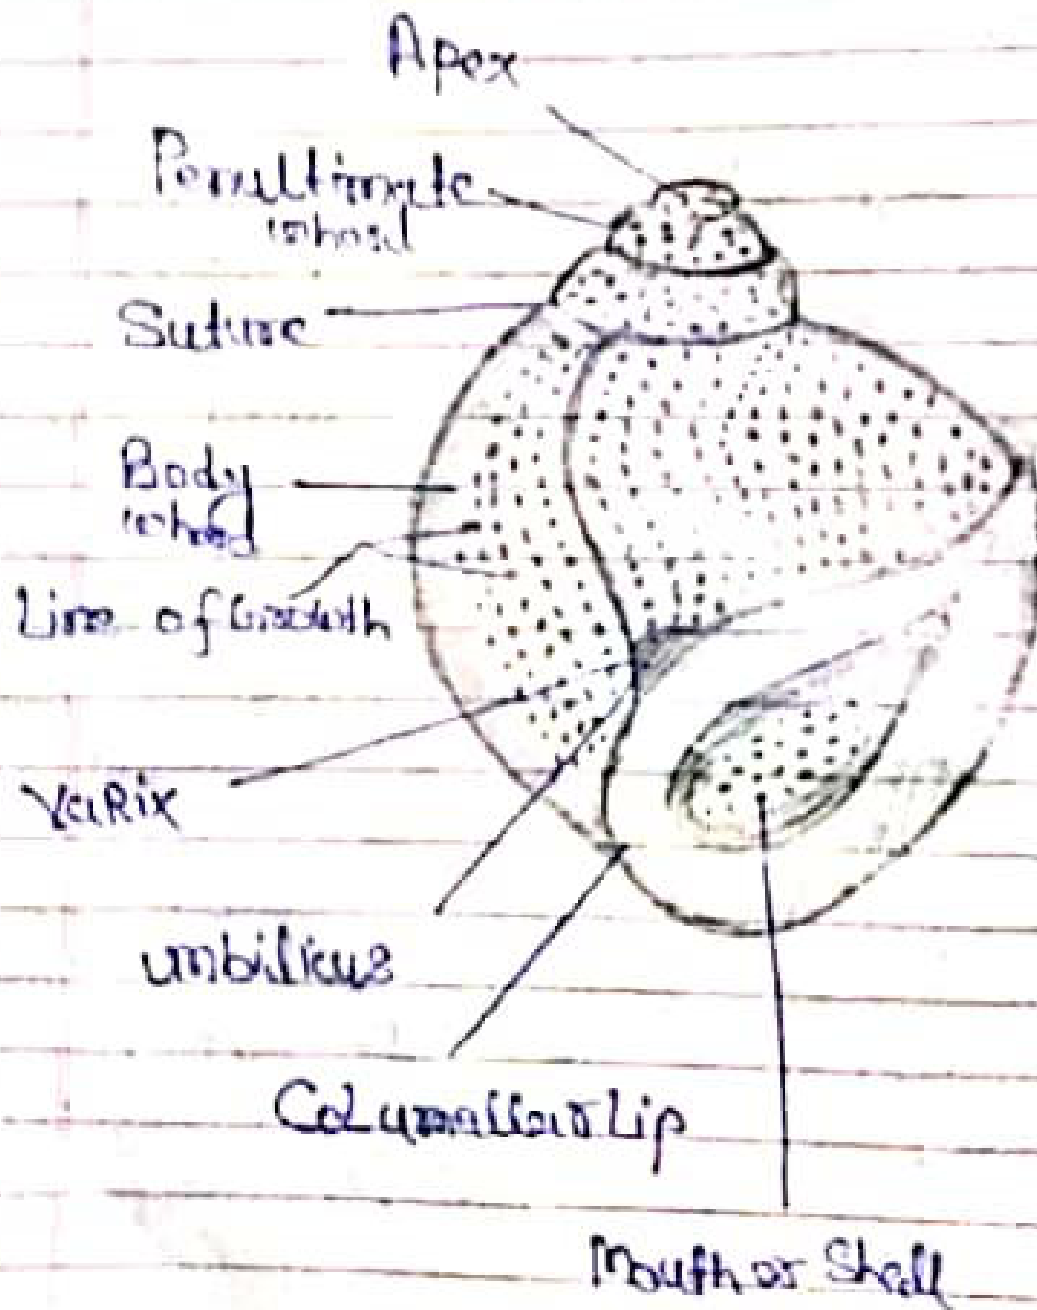 Apex
Penultimate
whorl
Suture
Body
whorl
Line of Growth
VaRix
umbilicus
Columellar Lip
Mouth or Shell